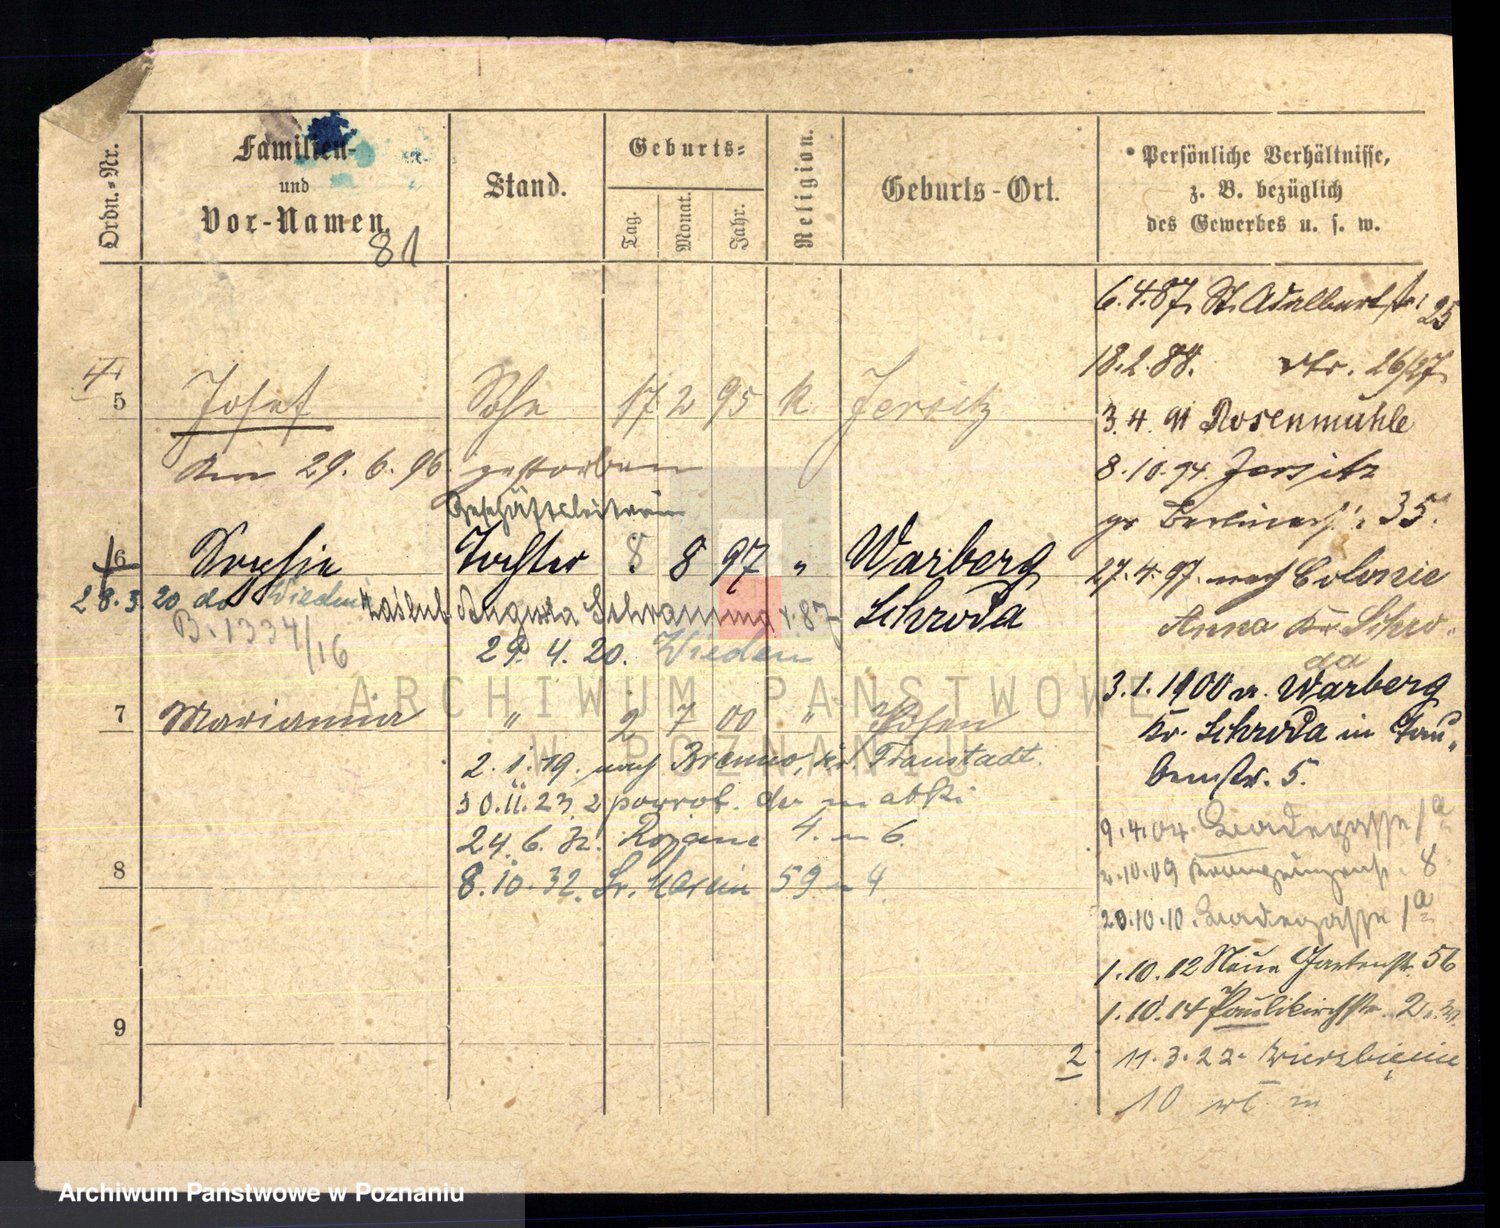 Ordn.-Nr.
Familien-
und
Vor-Namen.
81
Stand.
Geburts-
Tag.
Monat.
Jahr.
Religion.
Geburts-Ort.
Persönliche Verhältnisse,
z. B. bezüglich
des Gewerbes u. s. w.
4
5 Josef Sohn 17 2 95 k Jersitz
Am 29. 6. 96. gestorben
Geschäftsleiterin
6 Sophie Tochter 8 8 97 " Warberg
Schroda
28.3.20 do Wiednia
zaślub. Schramma
B. 1334/16
29. 4. 20. Wieden
7 Marianna " 2 7 00 " Posen
2. 1. 19. nach Brenno, Kr. Fraustadt.
30. 11. 23. z powrot. do m
24. 6. 4. m 6.
8 8. 10. 32. Św. Marcin 59 m 4.
9
6.4.87. St. Adalbertstr. 25
18.2.88. dtr. 26/27.
3. 4. 91 Rosenmühle
8.10.94. Jersitz
gr Berlinerstr. 35.
27.4.97. nach Colonie
Anna Kr. Schro-
da
3.1.1900 v. Warberg
Kr. Schroda in Tau-
benstr. 5.
9.4.04. 1a
2.10.09 8
20.10.10. 1a
1.10.12 Neue Gartenstr. 56
1.10.14 Paulikirchstr. 2
2 11.3.22. Wierzbięcice
10 m
ARCHIWUM PAŃSTWOWE
W POZNANIU
Archiwum Państwowe w Poznaniu